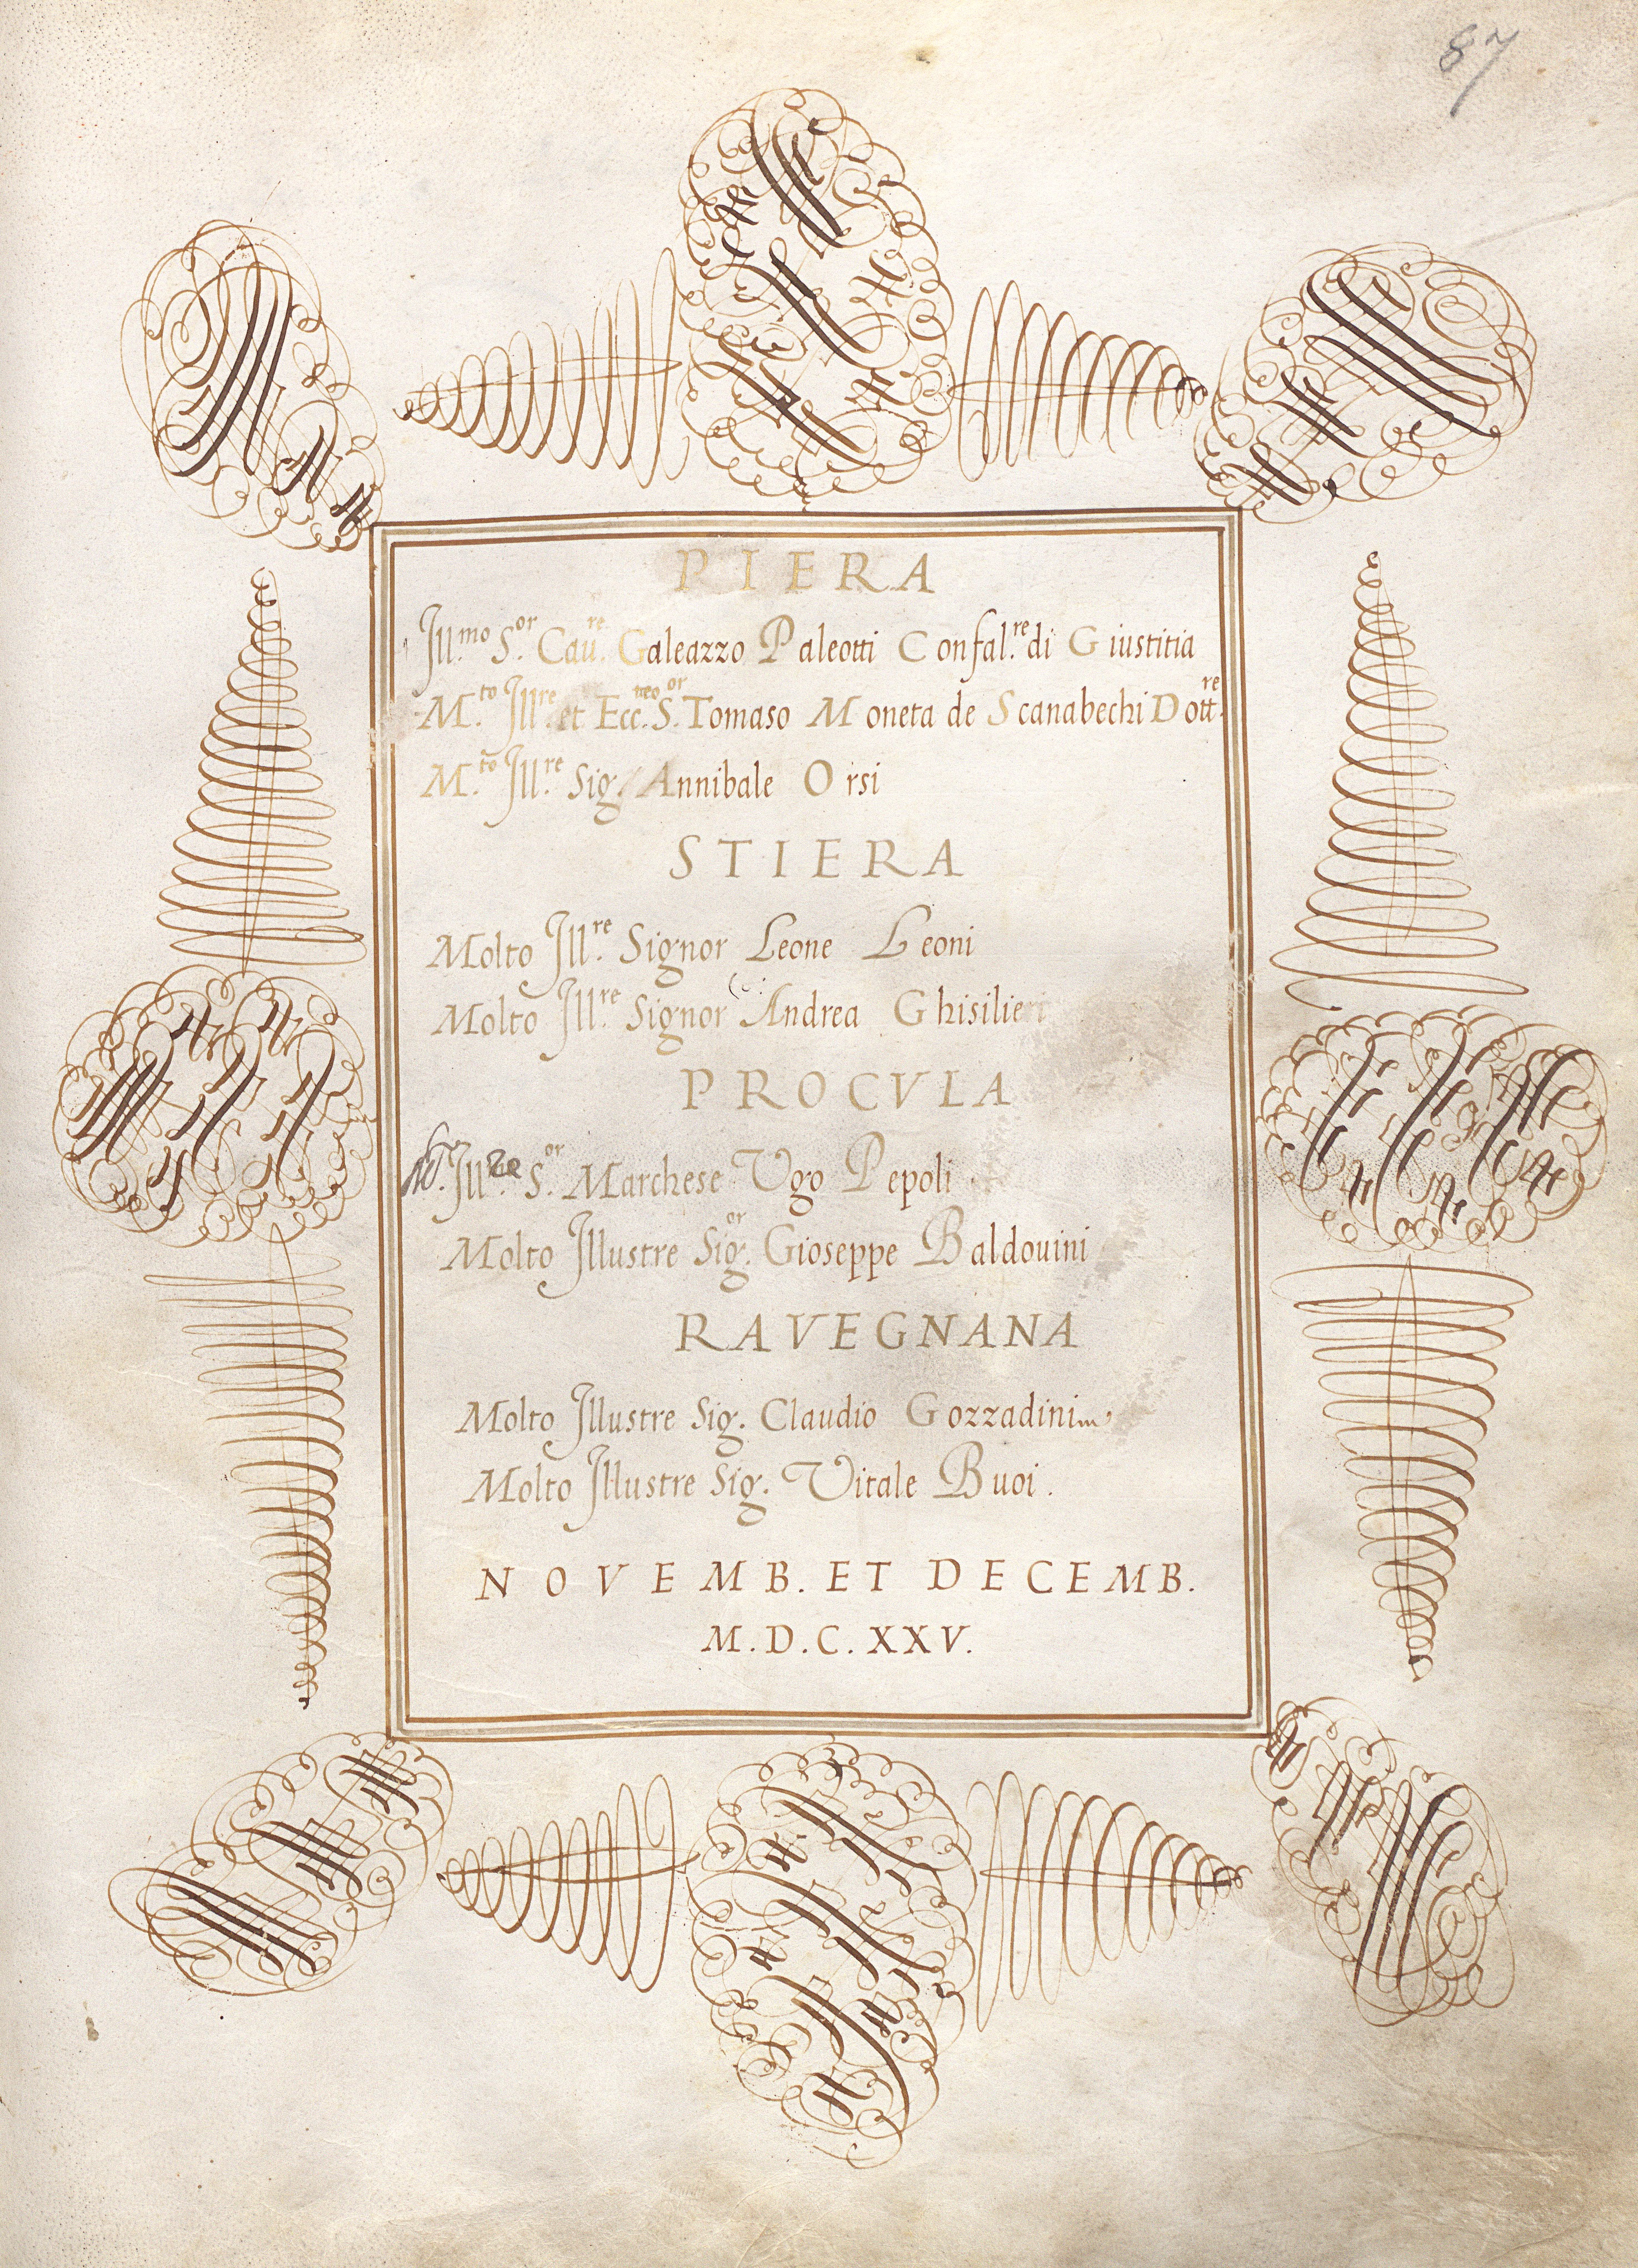 87
PIERA
Ill.mo S.or Cau.re Galeazzo Paleotti Confal.re di Giustitia
M.to Ill.re et Ecc.mo S.or Tomaso Moneta de Scanabechi Dott.re
M.to Ill.re Sig. Annibale Orsi
STIERA
Molto Ill.re Signor Leone Leoni
Molto Ill.re Signor Andrea Ghisilieri
PROCVLA
Ill.re S.or Marchese Vgo Pepoli
Molto Illustre Sig.or Gioseppe Baldouini
RAVEGNANA
Molto Illustre Sig. Claudio Gozzadini
Molto Illustre Sig. Vitale Buoi.
NOVEMB. ET DECEMB.
M.D.C.XXV.